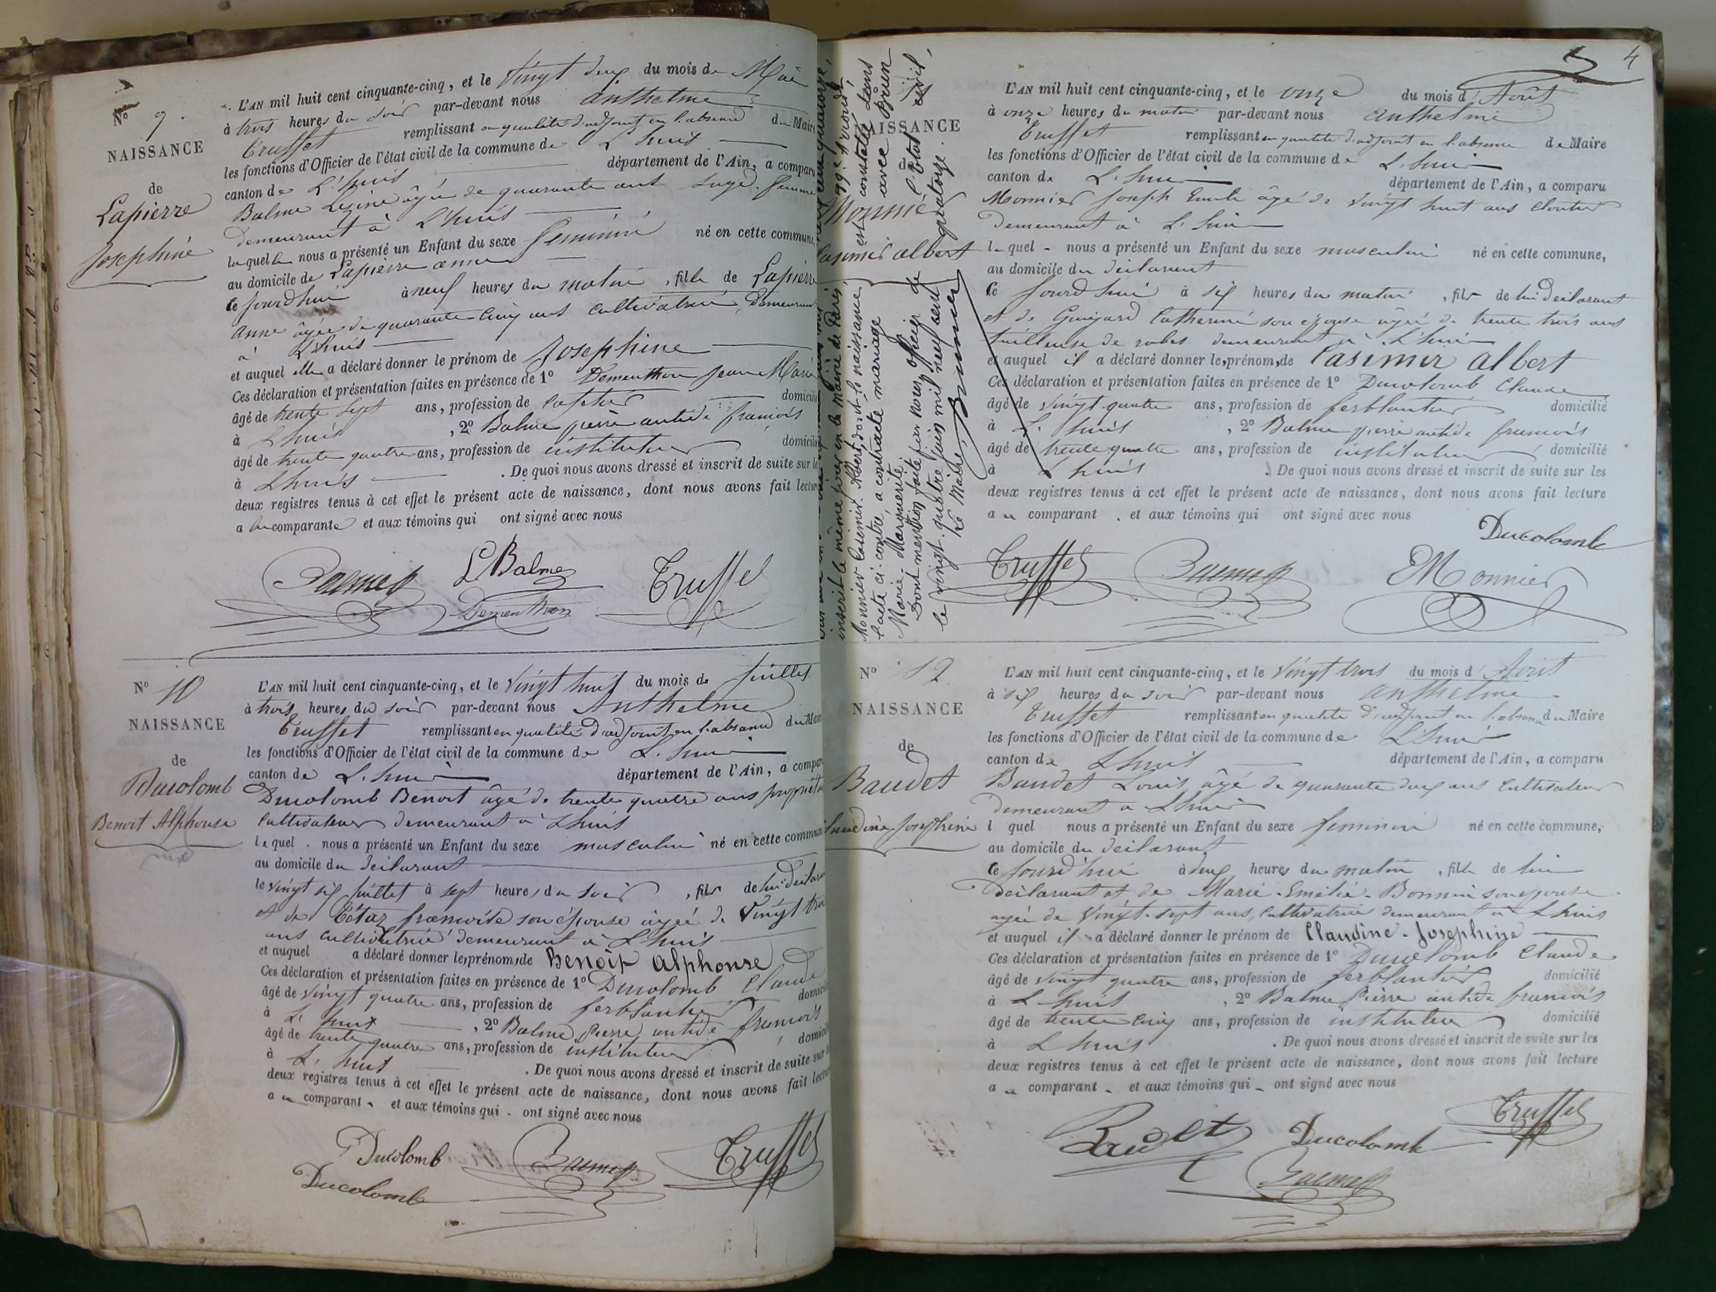 N° 9.
NAISSANCE
de
Lapierre
Josephine
L'AN mil huit cent cinquante-cinq, et le vingt deux du mois de Mai
à trois heures du soir par-devant nous anthelme
Truffet remplissant en qualité d'adjoint en l'absence du Maire
les fonctions d'Officier de l'état civil de la commune de L'huis
canton de L'huis département de l'Ain, a comparu
Balme Lezine âgée de quarante ans sage femme
demeurant à L'huis
laquelle nous a présenté un Enfant du sexe feminin né en cette commune,
au domicile de Lapierre anne
Ce jourdhui à neuf heures du matin, fille de Lapierre
anne âgée de quarante cinq ans cultivatrice demeurant
à L'huis
et auquel elle a déclaré donner le prénom de Josephine
Ces déclaration et présentation faites en présence de 1° Dementhon Jean Marie
âgé de trente sept ans, profession de cafetier domicilié
à Lhuis, 2° Balme pierre antide francois
âgé de trente quatre ans, profession de instituteur domicilié
à Lhuis. De quoi nous avons dressé et inscrit de suite sur les
deux registres tenus à cet effet le présent acte de naissance, dont nous avons fait lecture
a la comparante et aux témoins qui ont signé avec nous
Balme L Balme Truffet
Dementhon
N° 10
NAISSANCE
de
Ducolomb
Benoit Alphonse
L'AN mil huit cent cinquante-cinq, et le vingt huit du mois de juillet
à trois heures du soir par-devant nous Anthelme
Truffet remplissant en qualité d'adjoint en l'absence du Maire
les fonctions d'Officier de l'état civil de la commune de L'huis
canton de L'huis département de l'Ain, a comparu
Ducolomb Benoit âgé de trente quatre ans propriétaire
cultivateur demeurant à Lhuis
lequel nous a présenté un Enfant du sexe masculin né en cette commune
au domicile du déclarant
le vingt six juillet à sept heures du soir, fils de lui déclarant
et de Tétaz francoise son épouse âgée de vingt trois
ans cultivatrice demeurant à L'huis
et auquel a déclaré donner les prénoms de Benoit Alphonse
Ces déclaration et présentation faites en présence de 1° Ducolomb Claude
âgé de vingt quatre ans, profession de ferblantier domicilié
à L'huis, 2° Balme Pierre antide francois
âgé de trente quatre ans, profession de instituteur domicilié
à L'huis. De quoi nous avons dressé et inscrit de suite sur les
deux registres tenus à cet effet le présent acte de naissance, dont nous avons fait lecture
a u comparant et aux témoins qui ont signé avec nous
Ducolomb Balme Truffet
Ducolomb
4
NAISSANCE
de
Monnier
Casimir albert
inscrit le même jour en la mairie de Paris
Monnier Casimir Albert dont la naissance est constatée dans
l'acte ci-contre, a contracté mariage avec
Marie Marguerite
Dont mention faite par nous officier de l'état civil,
le vingt quatre juin mil neuf cent
Le Maire,
L'AN mil huit cent cinquante-cinq, et le onze du mois d'Août
à onze heures du matin par-devant nous anthelme
Truffet remplissant en qualité d'adjoint en l'absence de Maire
les fonctions d'Officier de l'état civil de la commune de L'huis
canton de L'huis département de l'Ain, a comparu
Monnier Joseph Emile âgé de vingt huit ans cloutier
demeurant à L'huis
lequel nous a présenté un Enfant du sexe masculin né en cette commune,
au domicile du déclarant
Ce jourd'hui à six heures du matin, fils de lui déclarant
et de Guigard Catherine son epouse âgée de trente trois ans
tailleuse de robes demeurant à L'huis
et auquel il a déclaré donner les prénoms de Casimir albert
Ces déclaration et présentation faites en présence de 1° Ducolomb Claude
âgé de vingt quatre ans, profession de ferblantier domicilié
à L'huis, 2° Balme pierre antide francois
âgé de trente quatre ans, profession de instituteur domicilié
à Lhuis. De quoi nous avons dressé et inscrit de suite sur les
deux registres tenus à cet effet le présent acte de naissance, dont nous avons fait lecture
a u comparant et aux témoins qui ont signé avec nous
Ducolomb
Truffet Balme EMonnier
N° 12
NAISSANCE
de
Baudet
Claudine Josephine
L'AN mil huit cent cinquante-cinq, et le vingt trois du mois d'Août
à six heures du soir par-devant nous anthelme
Truffet remplissant en qualité d'adjoint en l'absence du Maire
les fonctions d'Officier de l'état civil de la commune de L'huis
canton de Lhuis département de l'Ain, a comparu
Baudet Louis âgé de quarante deux ans cultivateur
demeurant à Lhuis
l quel nous a présenté un Enfant du sexe feminin né en cette commune,
au domicile du déclarant
Ce jourd'hui à deux heures du matin, fille de lui
déclarant et de Marie Emélie Bonnin son epouse
agée de vingt-sept ans, cultivatrice demeurant à Lhuis
et auquel il a déclaré donner le prénom de Claudine-Josephine
Ces déclaration et présentation faites en présence de 1° Ducolomb Claude
âgé de vingt quatre ans, profession de ferblantier domicilié
à L'huis, 2° Balme Pierre antide francois
âgé de trente cinq ans, profession de instituteur domicilié
à Lhuis. De quoi nous avons dressé et inscrit de suite sur les
deux registres tenus à cet effet le présent acte de naissance, dont nous avons fait lecture
a u comparant et aux témoins qui ont signé avec nous
Baudet Ducolomb Truffet
Balme